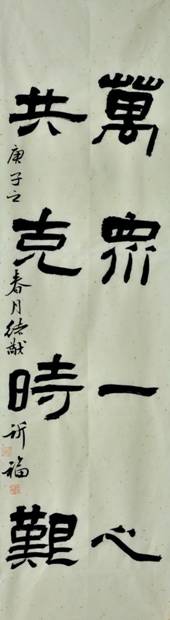 萬眾一心
共克時艱
庚子之春月德猷祈福